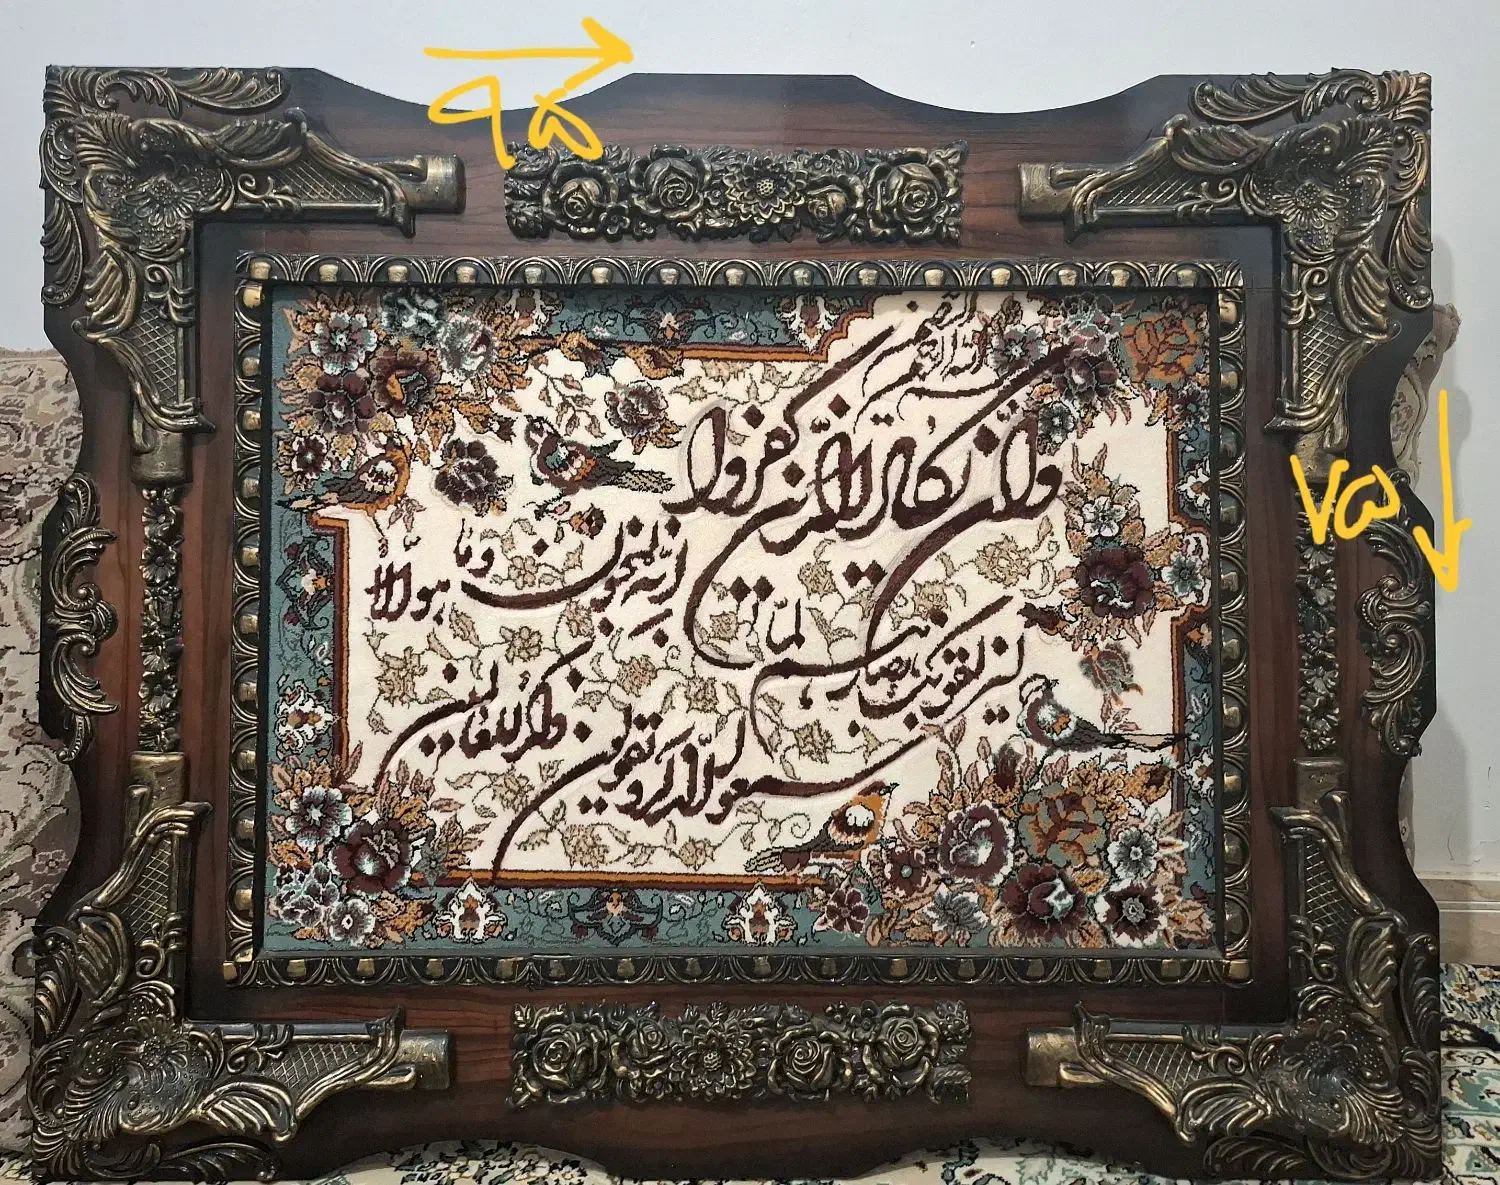 ۹۵
بسم الله الرحمن الرحیم
وان یکاد الذین کفروا
لیزلقونک بابصارهم لما
سمعوا الذکر و یقولون
انه لمجنون و ما هو الا
ذکر للعالمین
۷۵